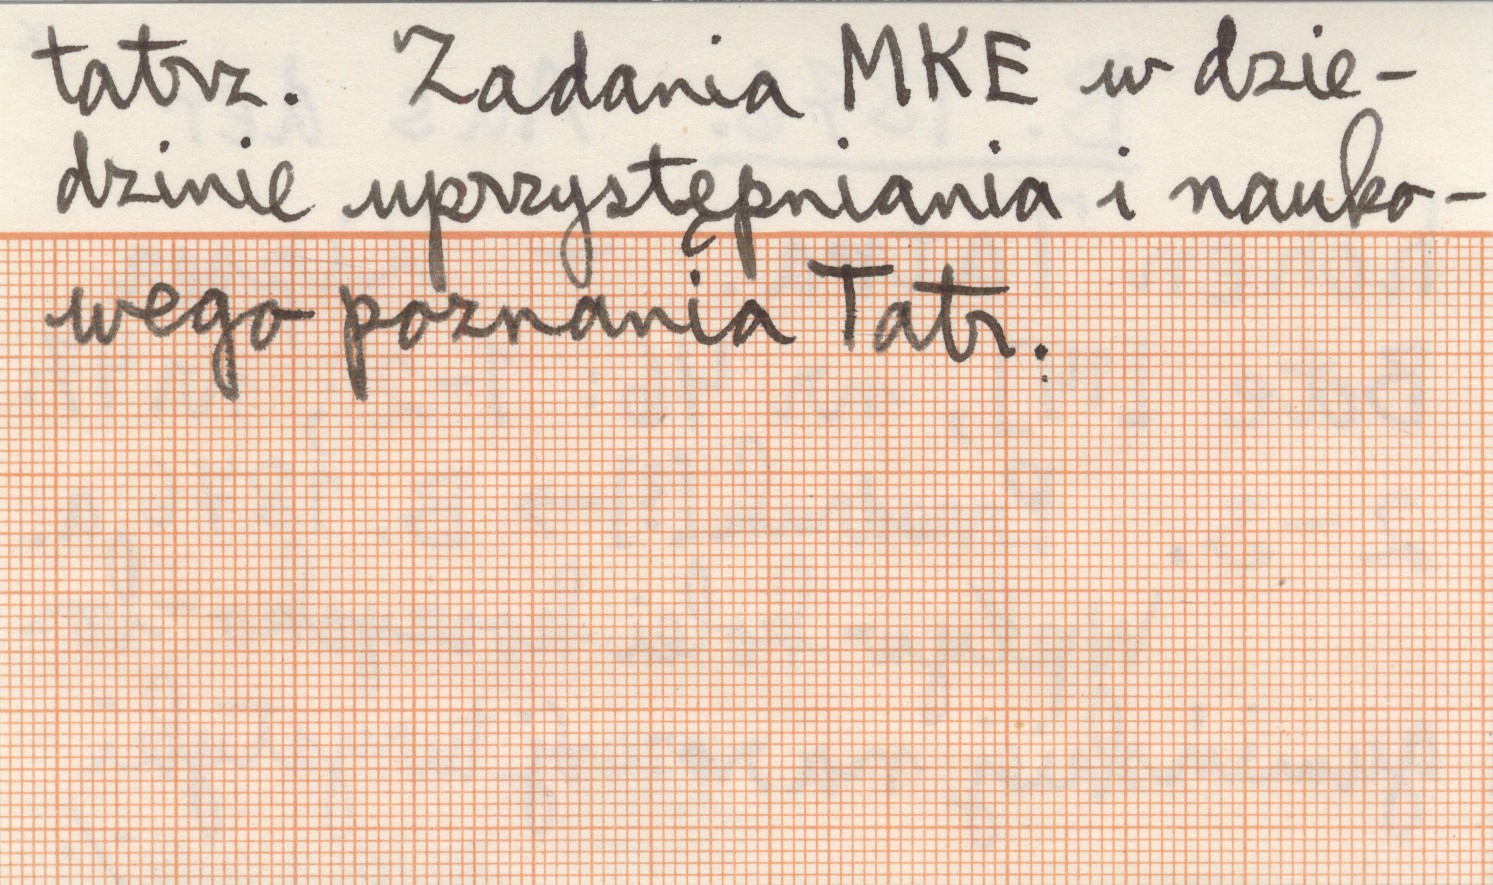 tatrz. Zadania MKE w dzie-
dzinie uprzystępniania i nauko-
wego poznania Tatr.